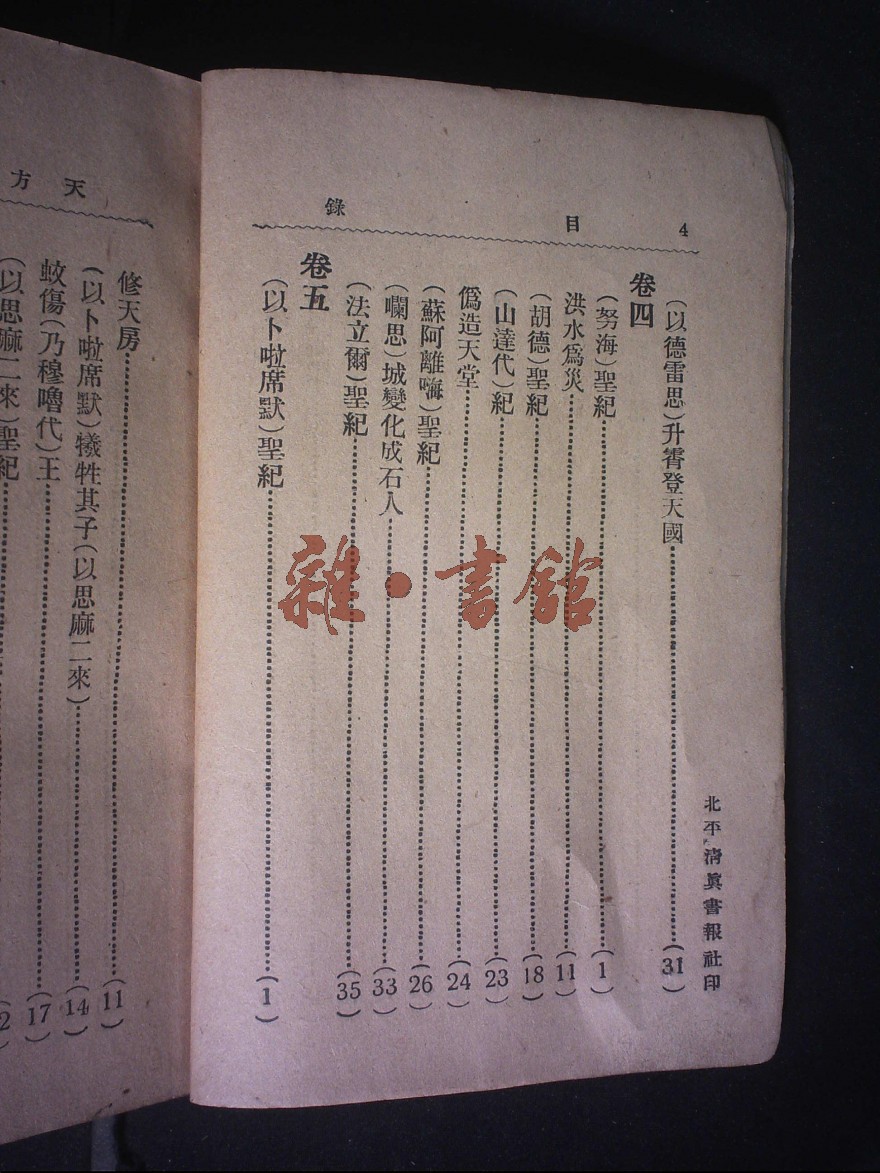 4 目錄
(以德雷思)升霄登天國(31)
卷四
(努海)聖紀(1)
洪水爲災(11)
(胡德)聖紀(18)
(山達代)紀(23)
僞造天堂(24)
(蘇阿離嗨)聖紀(26)
(囒思)城變化成石人(33)
(法立爾)聖紀(35)
卷五
(以卜啦席默)聖紀(1)
北平清眞書報社印
雜·書館
天方
修天房(11)
(以卜啦席默)犧牲其子(以思麻二來)(14)
蚊傷(乃穆嚕代)王(17)
(以思麻二來)聖紀